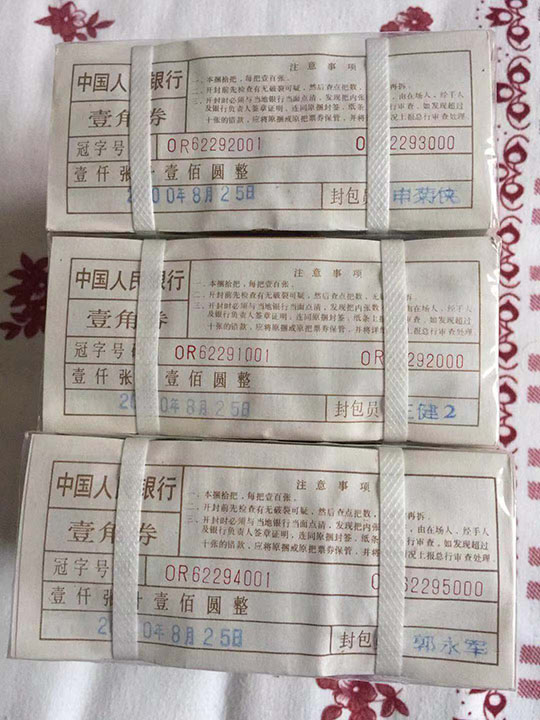 中国人民银行
壹角券
冠字号
OR62292001
62293000
壹仟张 壹佰圆整
2000年8月25日
封包员 申菊侠
注意事项
一、本捆拾把,每把壹百张。
二、开封前先检查有无破裂可疑,然后查点把数,
再拆
三、开封时必须与当地银行当面点清,发现把内张
由在场人、经手人
及银行负责人签章证明,连同原捆封签,纸条
行审查,如发现超过
十张的错款,应将原捆或原把票券保管,并将
况上报总行审查处理
中国人民银行
壹角券
冠字号
OR62291001
62292000
壹仟张 壹佰圆整
2000年8月25日
封包员 王健2
注意事项
一、本捆拾把,每把壹百张。
二、开封前先检查有无破裂可疑,然后查点把数,
再拆
三、开封时必须与当地银行当面点清,发现把内张
由在场人、经手人
及银行负责人签章证明,连同原捆封签、纸条
行审查,如发现超过
十张的错款,应将原捆或原把票券保管,并将详
况上报总行审查处理
中国人民银行
壹角券
冠字号
OR62294001
62295000
壹仟张 壹佰圆整
2000年8月25日
封包 郭永军
注意事项
一、本捆拾把,每把壹百张。
二、开封前先检查有无破裂可疑,然后查点把数,
再拆
三、开封时必须与当地银行当面点清,发现把内张
由在场人、经手人
及银行负责人签章证明,连同原捆封签、纸条
行审查,如发现超过
十张的错款,应将原捆或原把票券保管,并将
况上报总行审查处理